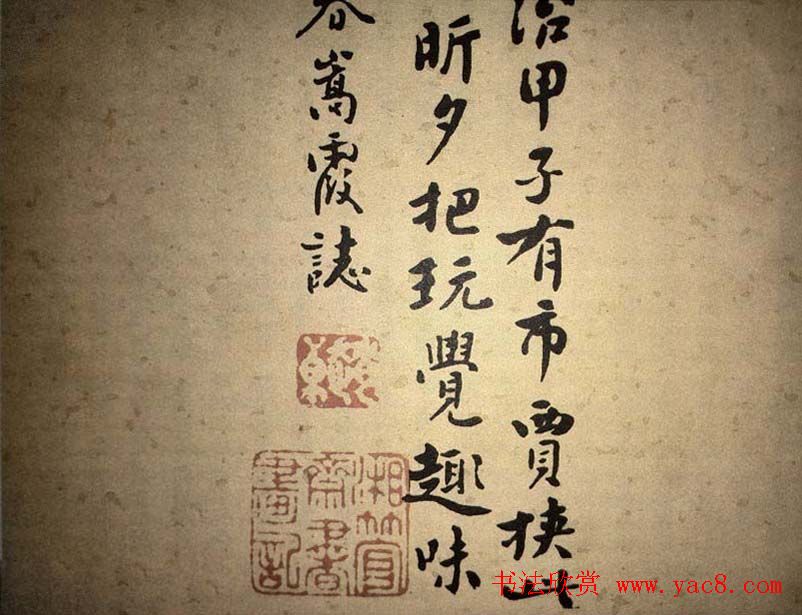 治甲子有市賈挾
昕夕把玩覺趣味
春嵩霞誌
湘管齋書畫記
书法欣赏 www.yac8.com